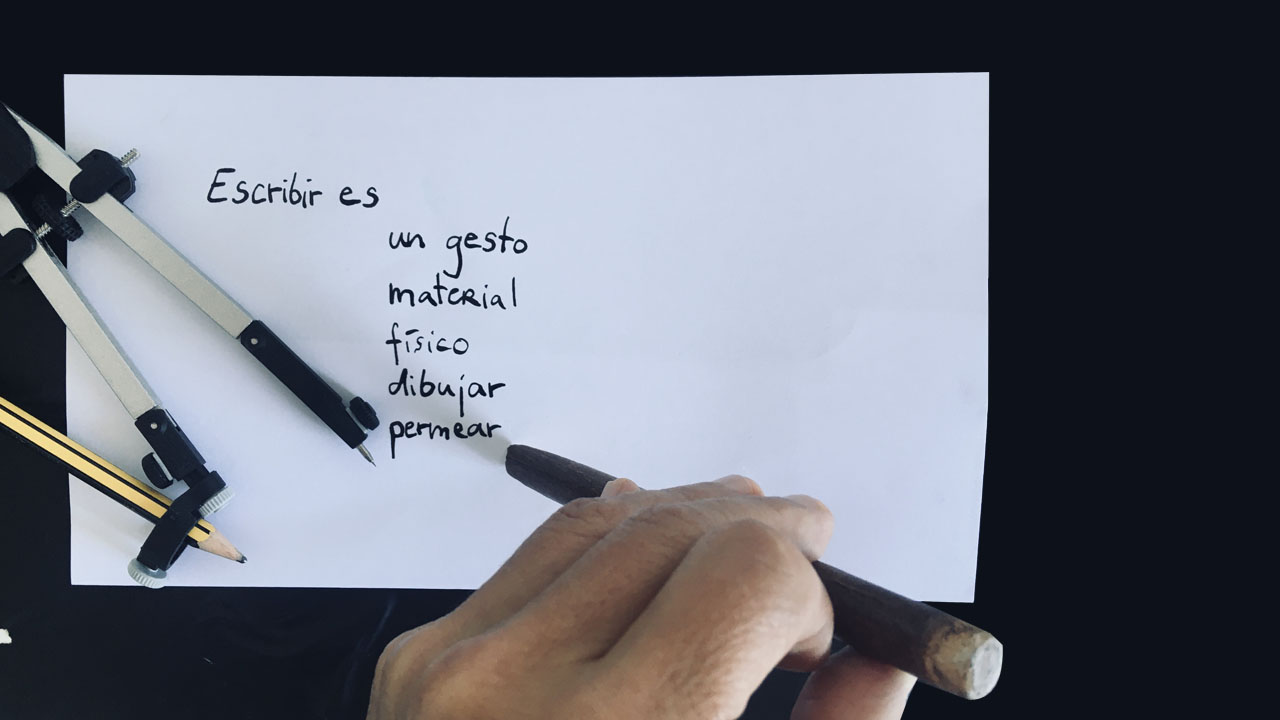 Escribir es
un gesto
material
físico
dibujar
permear